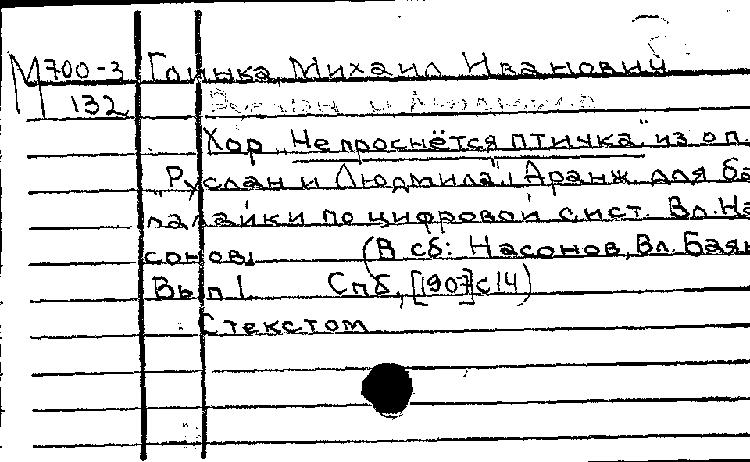 М 700-3 Глинка, Михаил Иванович
132 Руслан и Людмила
Хор „Не проснётся птичка" из оп.
„Руслан и Людмила". Аранж. для ба
лалайки по цифровой сист. Вл. На
сонов.
(В сб: Насонов, Вл. Баян
Вып 1. Спб, [1907] с 14)
С текстом